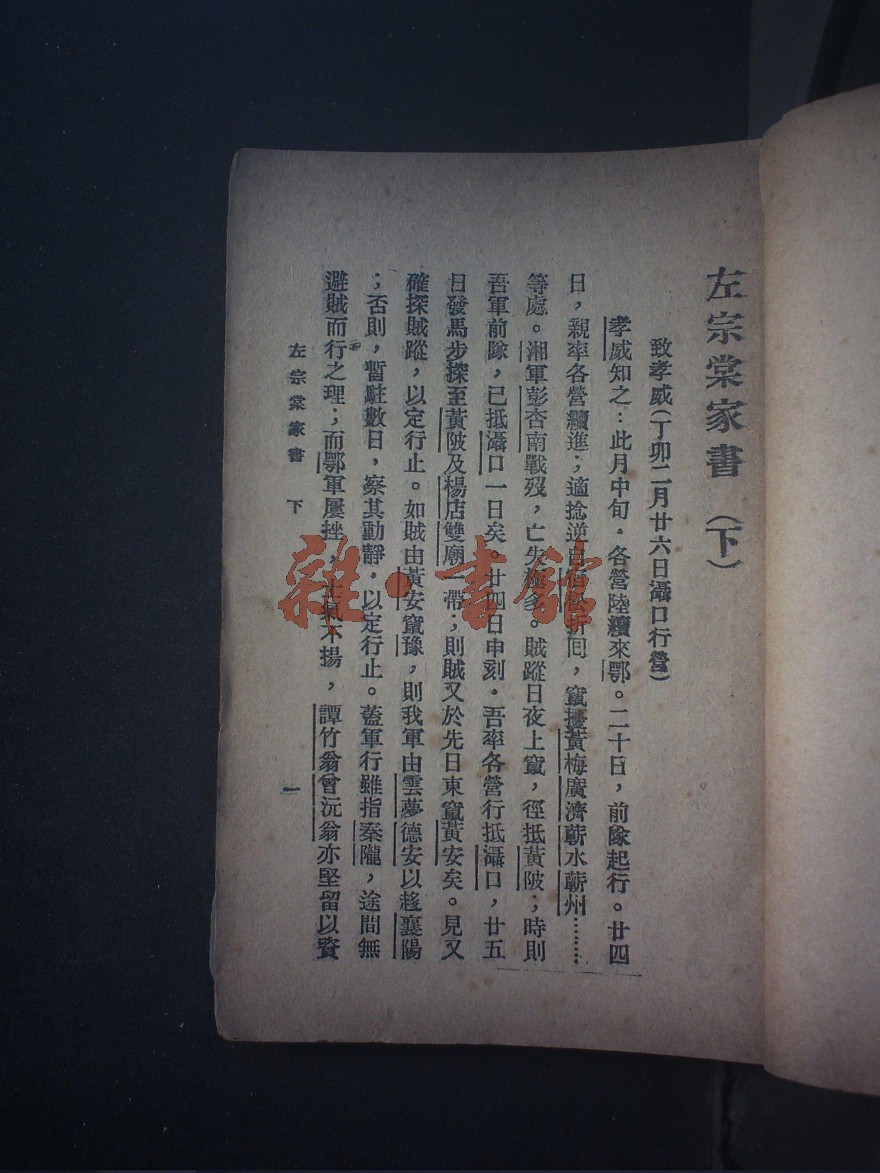 左宗棠家書（下）
致孝威（丁卯二月廿六日灄口行營）
孝威知之：此月中旬．各營陸續來鄂。二十日，前隊起行。廿四
日，親率各營續進；適捻逆自折囘，竄擾黃梅廣濟蘄水蘄州………
等處。湘軍彭杏南戰歿，亡失多。賊蹤日夜上竄，徑抵黃陂；時則
吾軍前隊，已抵灄口一日矣。廿四日申刻．吾率各營行抵灄口，廿五
日發馬步探至黃陂及楊店雙廟一帶；則賊又於先日東竄黃安矣。見又
確探賊蹤，以定行止。如賊由黃安竄豫，則我軍由雲夢德安以趨襄陽
；否則，暫駐數日，察其動靜．以定行止。蓋軍行雖指秦隴，途間無
避賊而行之理；而鄂軍屢挫，士氣不揚，譚竹翁曾沅翁亦堅留以資
左宗棠家書　下
一
雜·書館